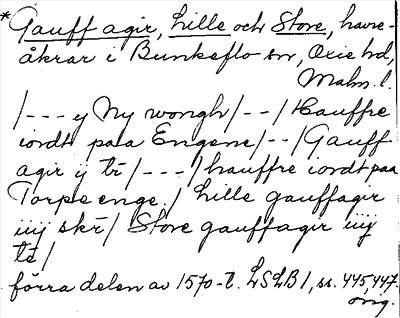 *Gauff agir, Lille och Store, havre-
åkrar i Bunkeflo sn, Oxie hd,
Malm. l.
/--- y Ny wongh/--/ Hauffre
iordt paa Engene/--/Gauff
agir ij tr̄/---/hauffre iordt paa
Torpe enge./ Lille gauffagir
iiij skr̄/ Store gauffagir iiij
tr̄/
förra delen av 1570-t. LSLB 1, ss. 445, 447.
orig.